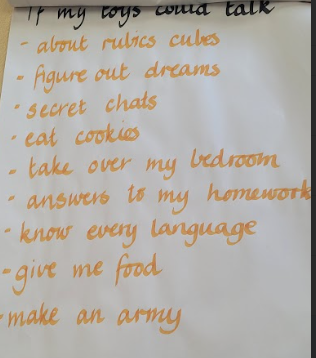 If my toys could talk
- about rubics cubes
- figure out dreams
- secret chats
- eat cookies
- take over my bedroom
- answers to my homework
- know every language
- give me food
- make an army